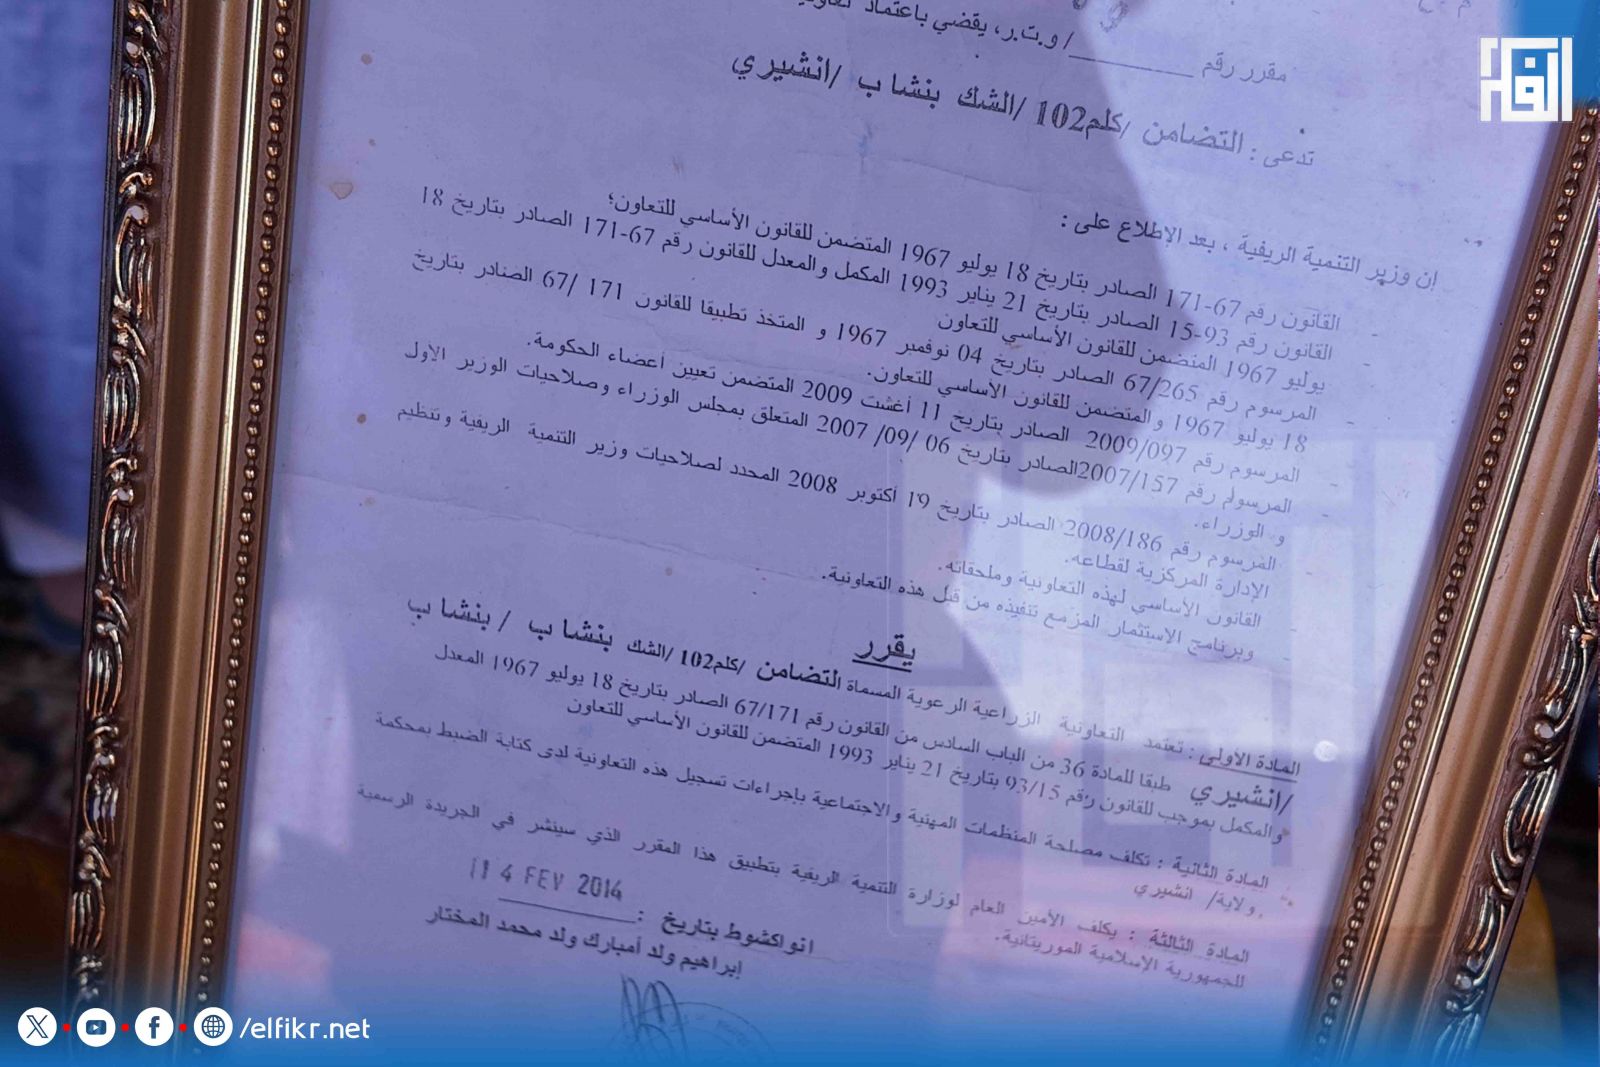 الفكر
مقرر رقم ــــــــ / و.ت.ر، يقضي باعتماد
تدعى : التضامن /كلم102 /الشك بنشاب /انشيري
إن وزير التنمية الريفية ، بعد الإطلاع على :
- القانون رقم 67-171 الصادر بتاريخ 18 يوليو 1967 المتضمن للقانون الأساسي للتعاون؛
- القانون رقم 93-15 الصادر بتاريخ 21 يناير 1993 المكمل والمعدل للقانون رقم 67-171 الصادر بتاريخ 18
يوليو 1967 المتضمن للقانون الأساسي للتعاون
- المرسوم رقم 67/265 الصادر بتاريخ 04 نوفمبر 1967 و المتخذ تطبيقا للقانون 171 /67 الصادر بتاريخ
18 يوليو 1967 والمتضمن للقانون الأساسي للتعاون.
- المرسوم رقم 2009/097 الصادر بتاريخ 11 أغشت 2009 المتضمن تعيين أعضاء الحكومة.
- المرسوم رقم 2007/157الصادر بتاريخ 06 /09/ 2007 المتعلق بمجلس الوزراء وصلاحيات الوزير الاول
و الوزراء.
- المرسوم رقم 2008/186 الصادر بتاريخ 19 أكتوبر 2008 المحدد لصلاحيات وزير التنمية الريفية وتنظيم
الإدارة المركزية لقطاعه.
- القانون الأساسي لهذه التعاونية وملحقاته.
- وبرنامج الاستثمار المزمع تنفيذه من قبل هذه التعاونية.
يقرر
المادة الأولى : تعتمد التعاونية الزراعية الرعوية المسماة التضامن /كلم102 /الشك بنشاب / بنشاب
/انشيري طبقا للمادة 36 من الباب السادس من القانون رقم 67/171 الصادر بتاريخ 18 يوليو 1967 المعدل
والمكمل بموجب للقانون رقم 93/15 بتاريخ 21 يناير 1993 المتضمن للقانون الأساسي للتعاون
المادة الثانية : تكلف مصلحة المنظمات المهنية والاجتماعية بإجراءات تسجيل هذه التعاونية لدى كتابة الضبط بمحكمة
ولاية/ انشيري
المادة الثالثة : يكلف الأمين العام لوزارة التنمية الريفية بتطبيق هذا المقرر الذي سينشر في الجريدة الرسمية
للجمهورية الإسلامية الموريتانية.
انواكشوط بتاريخ : 14 FEV 2014
إبراهيم ولد أمبارك ولد محمد المختار
/elfikr.net